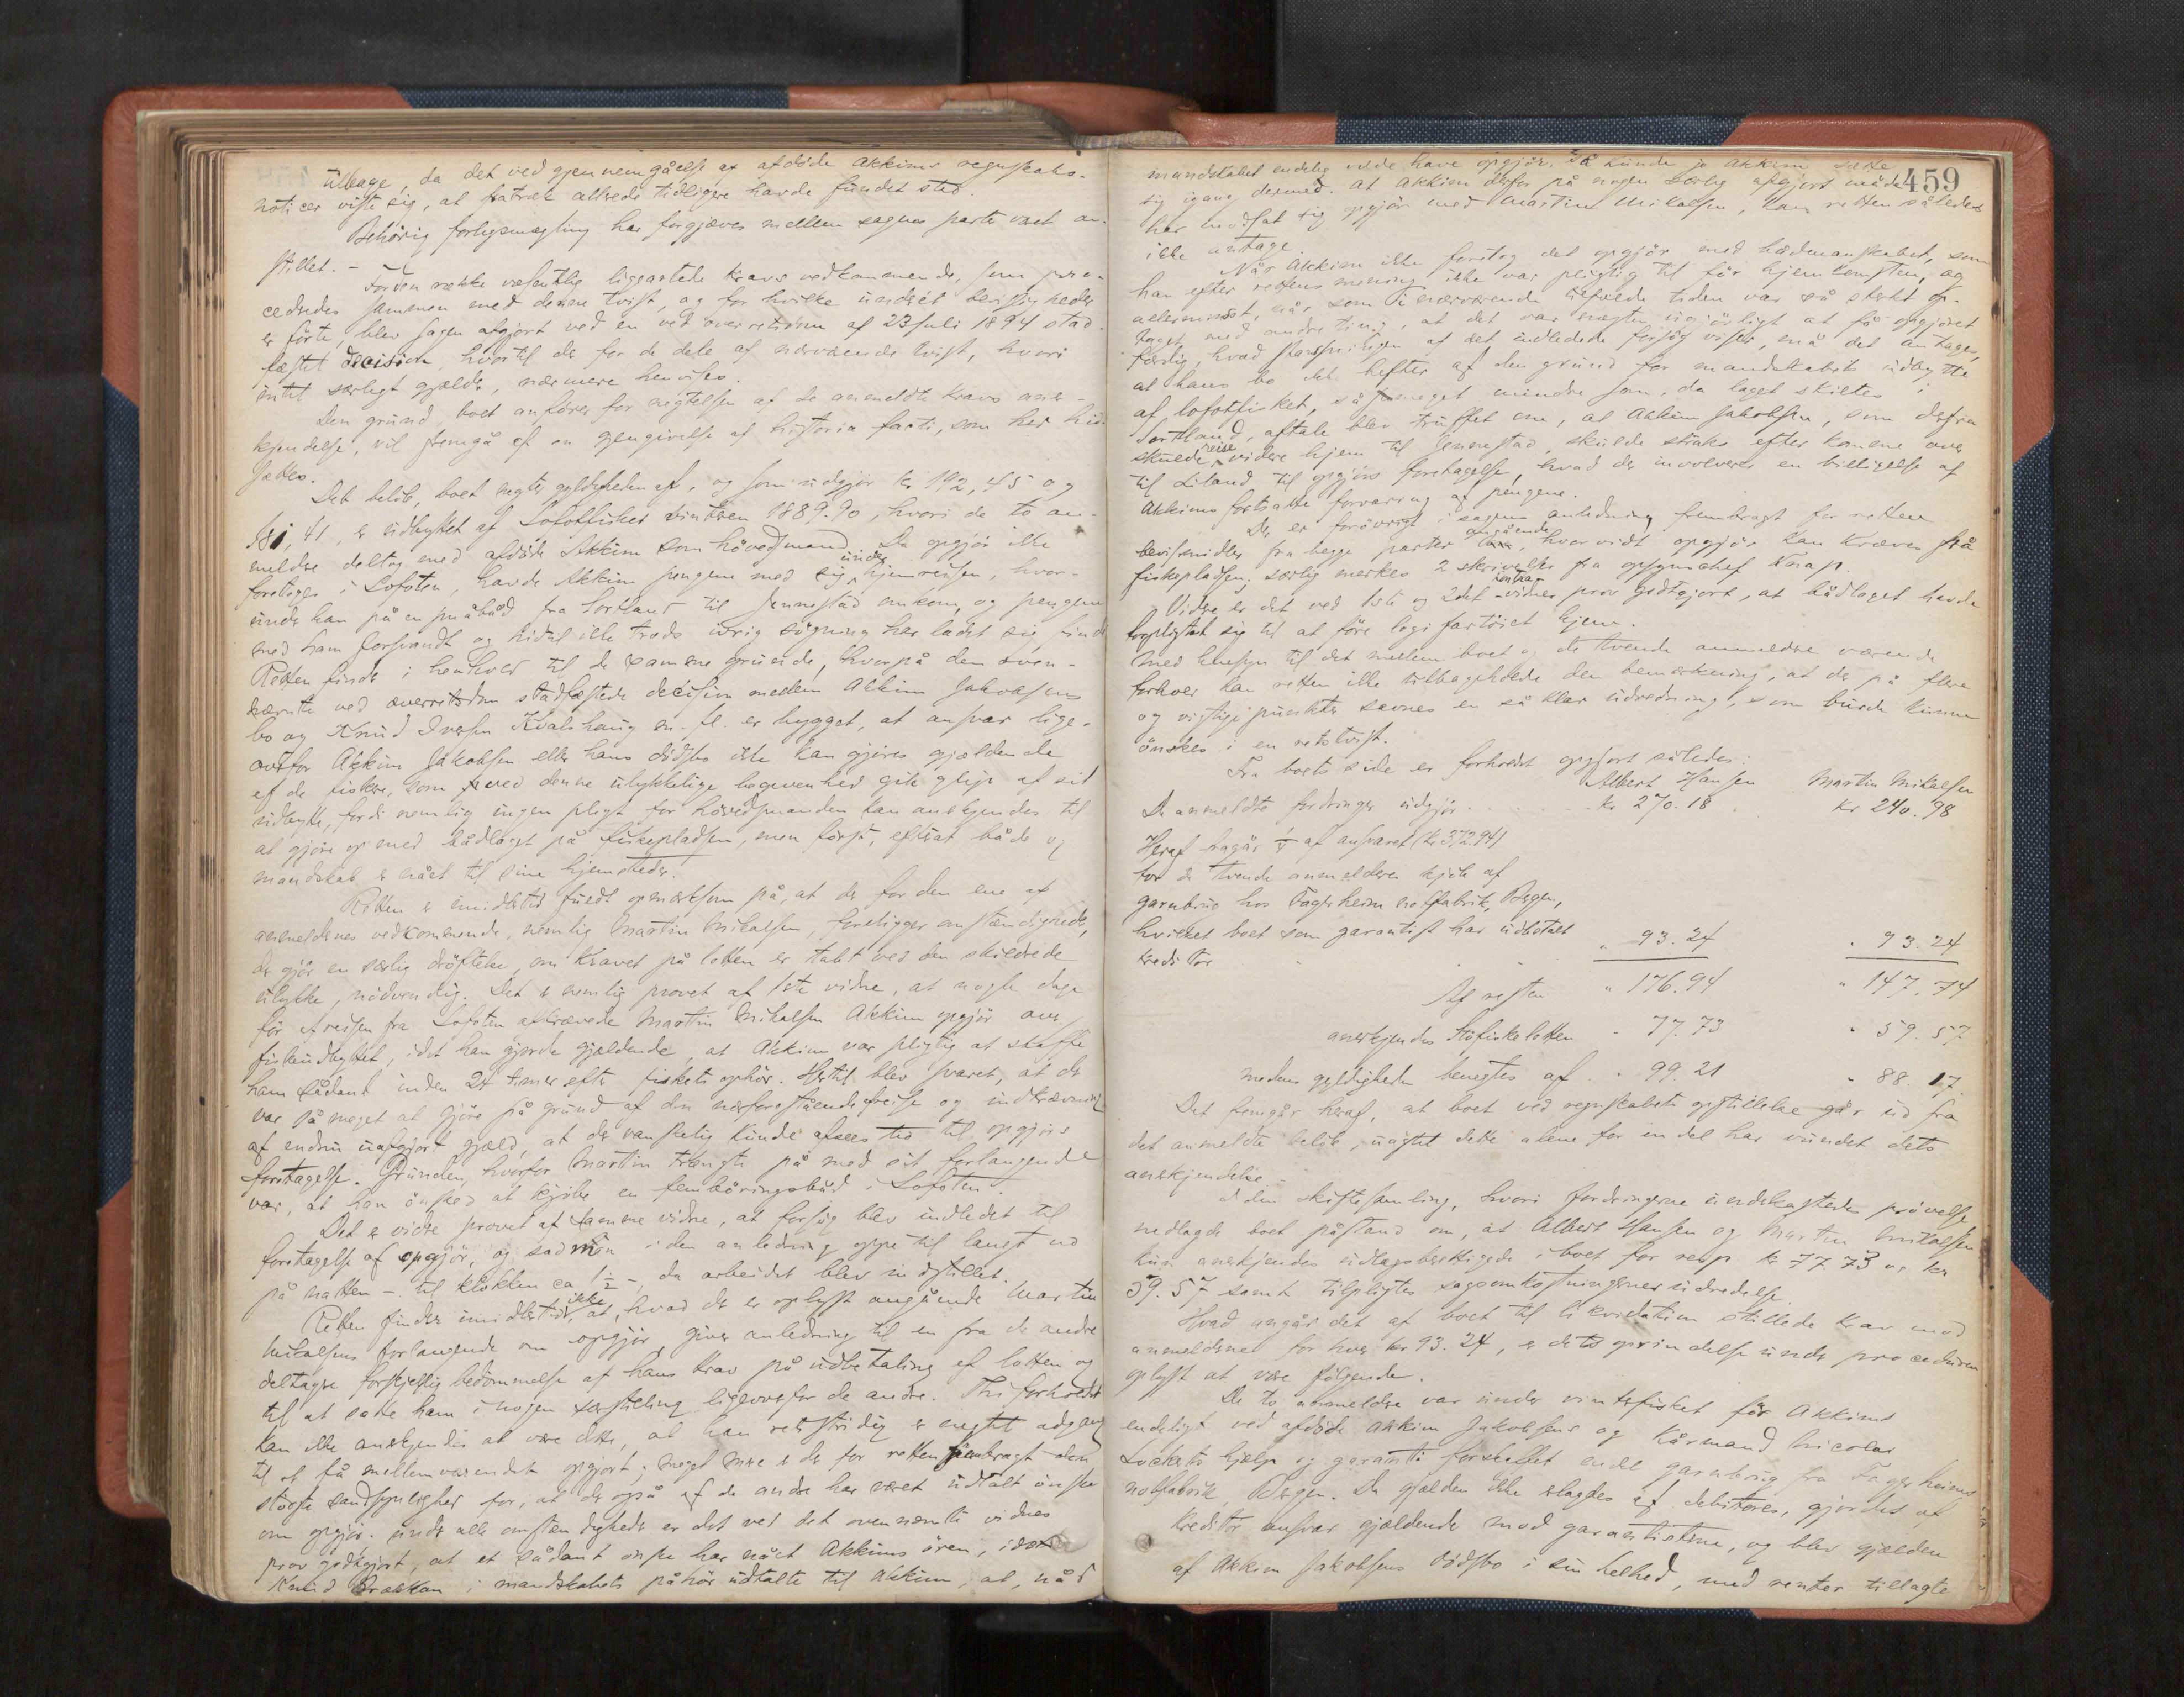 tilbage, da det ved gjennemgåelse af afdöde Akkims regnskabs-
noticer viste sig, at fratræk allerede tidligere havde fundet sted.
Behörig forligsmægling har forgjæves mellem sagens parter været an-
stillet. -
For den række væsentlig ligeartede kravs vedkommende, som pro-
cedredes sammen med denne tvist, og for hvilke indsét bevisligheder
er förte, blev sagen afgjort ved en ved overretsdom af 23 juli 1894 stad-
fæstet decision, hvortil der for de dele af nærværende tvist, hvori
intet særligt gjælder, nærmere henvises.
Den grund, boet anförer for nægtelsen af de anmeldte kravs aner-
kjendelse, vil fremgå af en gengivelse af historia facti, som her hid-
sættes.
Det belöb, boet negter gyldigheden af, og som udgjör kr 192,45 og
181,41, er udbyttet af Lofotfisket vinteren 1889-90, hvori de to an-
meldere deltog med afdöde Akkim som hövedsmand. Da opgjör ikke
foretoges i Lofoten, havde Akkim pengene med sig under hjemreisen, hvor-
under han på en småbåd fra Sortland til Jennestad omkom, og pengene
med ham forsvandt og hidtil ikke trods ivrig sögning har ladet sig finde
Retten finder i henhold til de samme grunde, hvorpå den oven-
nævnte ved overretsdom stadfæstede decision mellem Akkim Jakobsens
bo og Knud Iversen Kvalshaug m. fl. er bygget, at ansvar lige-
overfor Akkim Jakobsen eller hans dödsbo ikke kan gjöres gjældende
af de fiskere, som ved denne ulykkelige begivenhed gik glip af sit
udbytte, fordi nemlig ingen pligt for hövedsmanden kan anerkjendes til
at gjöre op med bådlaget på fiskepladsen, men först, efterat både og
mandskab er nået til sine hjemsteder.
Retten er imidlertid fuldt opmerksom på, at der for den ene af
anmeldernes vedkommende, nemlig Martin Mikalsen, foreligger omstændigheder,
der gjör en særlig dröftelse, om kravet på lotten er tabt ved den skildrede
ulykke, nödvendig. Det er nemlig provet af 1ste vidne, at nogle dage
för afreisen fra Lofoten afkrævede Martin Mikalsen Akkim opgjör over
fiskeudbyttet, idet han gjorde gjældende, at Akkim var pligtig at skaffe
ham sådant inden 24 timer efter fiskets ophör. Hertil blev svaret, at der
var så meget at gjöre på grund af den nærforestående afreise og inddrævning
af endnu uafgjort gjæld, at der vanskelig kunde afsees tid til opgjörs
foretagelse. Grunden, hvorfor Martin trængte på med sit forlangende
var, at han önsked at kjöbe en fembøringsbåd i Lofoten.
Det er videre provet af samme vidne, at forsög blev indledet til
foretagelse af opgjör, og sad man i den anledning oppe til langt ud
på natten - til klokken ca 1½ -, da arbeidet blev indstillet.
Retten finder imidlertid ikke, at, hvad der er oplyst angående Martin
Mikalsens forlangende om opgjör, giver anledning til en fra de andre
deltagere forskjellig bedömmelse af hans krav på udbetaling af lotten og
til at sætte ham i nogen særstilling ligeoverfor de andre. Thi forholdet
kan ikke anerkjendes at være dette, at han retsstridig er negtet adgang
til at få mellemværendet opgjort; meget mere er der for retten frembragt den
störste sandsynlighed for, at der også af de andre har været udtalt önske
om opgjör. under alle omstændigheder er det ved det ovennævnte vidnes
prov godtgjort, at et sådant önske har nået Akkims ören, idet
Knud Brækkan i mandskabets påhör udtalte til Akkim, at, når
459
mandskabet endelig vilde have opgjör. Så kunde jo Akkim sætte
sig igang dermed. At Akkim derfor på nogen særlig afgjort måde
har modsat sig opgjör med Martin Mikalsen, kan retten således
ikke antage.
Når Akkim ikke foretog det opgjör med bådmandskabet, som
han efter rettens mening ikke var pligtig til för hjemkomsten, og
allermindst, når, som i nærværende tilfælde tiden var så stærkt op-
taget med andre ting, at det var næsten ugjörligt at få opgjöret
færdig hvad strandsningen af det indledede forsög viser, må det antages,
at hans bo ikke hefter af den grund for mandskabets udbytte
af lofotfisket, så meget mindre som, da laget skiltes i
Sortland, aftale blev truffet om, at Akkim Jakobsen, som derfra
skulde reise videre hjem til Jennestad, skulde straks efter komme over
til Liland til opgjörs foretagelse, hvad der involverer en billigelse af
Akkims fortsatte forvaring af pengene.
Der er forövrigt i sagens anledning frembragt for retten
bevismidler fra begge parter angående, hvorvidt opgjör kan kræves på
fiskepladsen. særlig merkes 2 skrivelser fra opsynschef Knap.
Videre er det ved 1ste og 2det vidners prov godtgjort, at bådlaget havde
forpligtet sig til at före logifartöiet hjem.
Med hensyn til det mellem boet og de tvende anmeldere værende
forhold kan retten ikke tilbageholde den bemerkning, at der på flere
og vigtige punkter savnes en så klar udredning, som burde kunne
önskes i en retstvist.
Fra boets side er forholdet opgjort således:
Albert Hansen Martin Mikalsen
De anmeldte fordringer udgjör kr 270.18 kr 240.98
Heraf bagår ¼ af ansvaret (kr 372.94)
for de tvende anmelderes kjöb af
garnbrug hos Fagerheim notfabrik, Bergen,
hvilket boet som garantist har udbetalt
kreditor " 93.24 " 93.24
Af resten " 176.94 " 147.74
anerkjendes Störfiskelotten " 77.73 " 59.57
medens gyldigheden benegtes af " 99.21 " 88.17
Det fremgår heraf, at boet ved regnskabets opstillelse går ud fra
det anmeldte belöb, uagtet dette alene for en del har vundet dets
anerkjendelse.
I den skiftesamling, hvori fordringerne underkastedes prövelse,
nedlagde boet påstand om, at Albert Hansen og Martin Mikalsen
kun anerkjendes udlagsberettigede i boet for resp kr 77.73 og kr
59.57 samt tilpligtes sagsomkostningernes udredelse.
Hvad angår det af boet til likvidation stillede krav mod
anmelderne for hver kr 93.24, er dets oprindelse under proceduren
oplyst at være fölgende.
De to anmeldere var under vinterfisket för Akkims
endeligt ved afdöde Akkim Jakobsens og Kårmand Nicolai
Lockerts hjælp og garanti forskaffet endel garnbrug fra Fagerheims
notfabrik, Bergen. Da gjælden ikke erlagdes af debitorer, gjordes af
kreditor ansvar gjældende mod garantisterne, og blev gjælden
af Akkim Jakobsens dödsbo i sin helhed, med renter tillagte